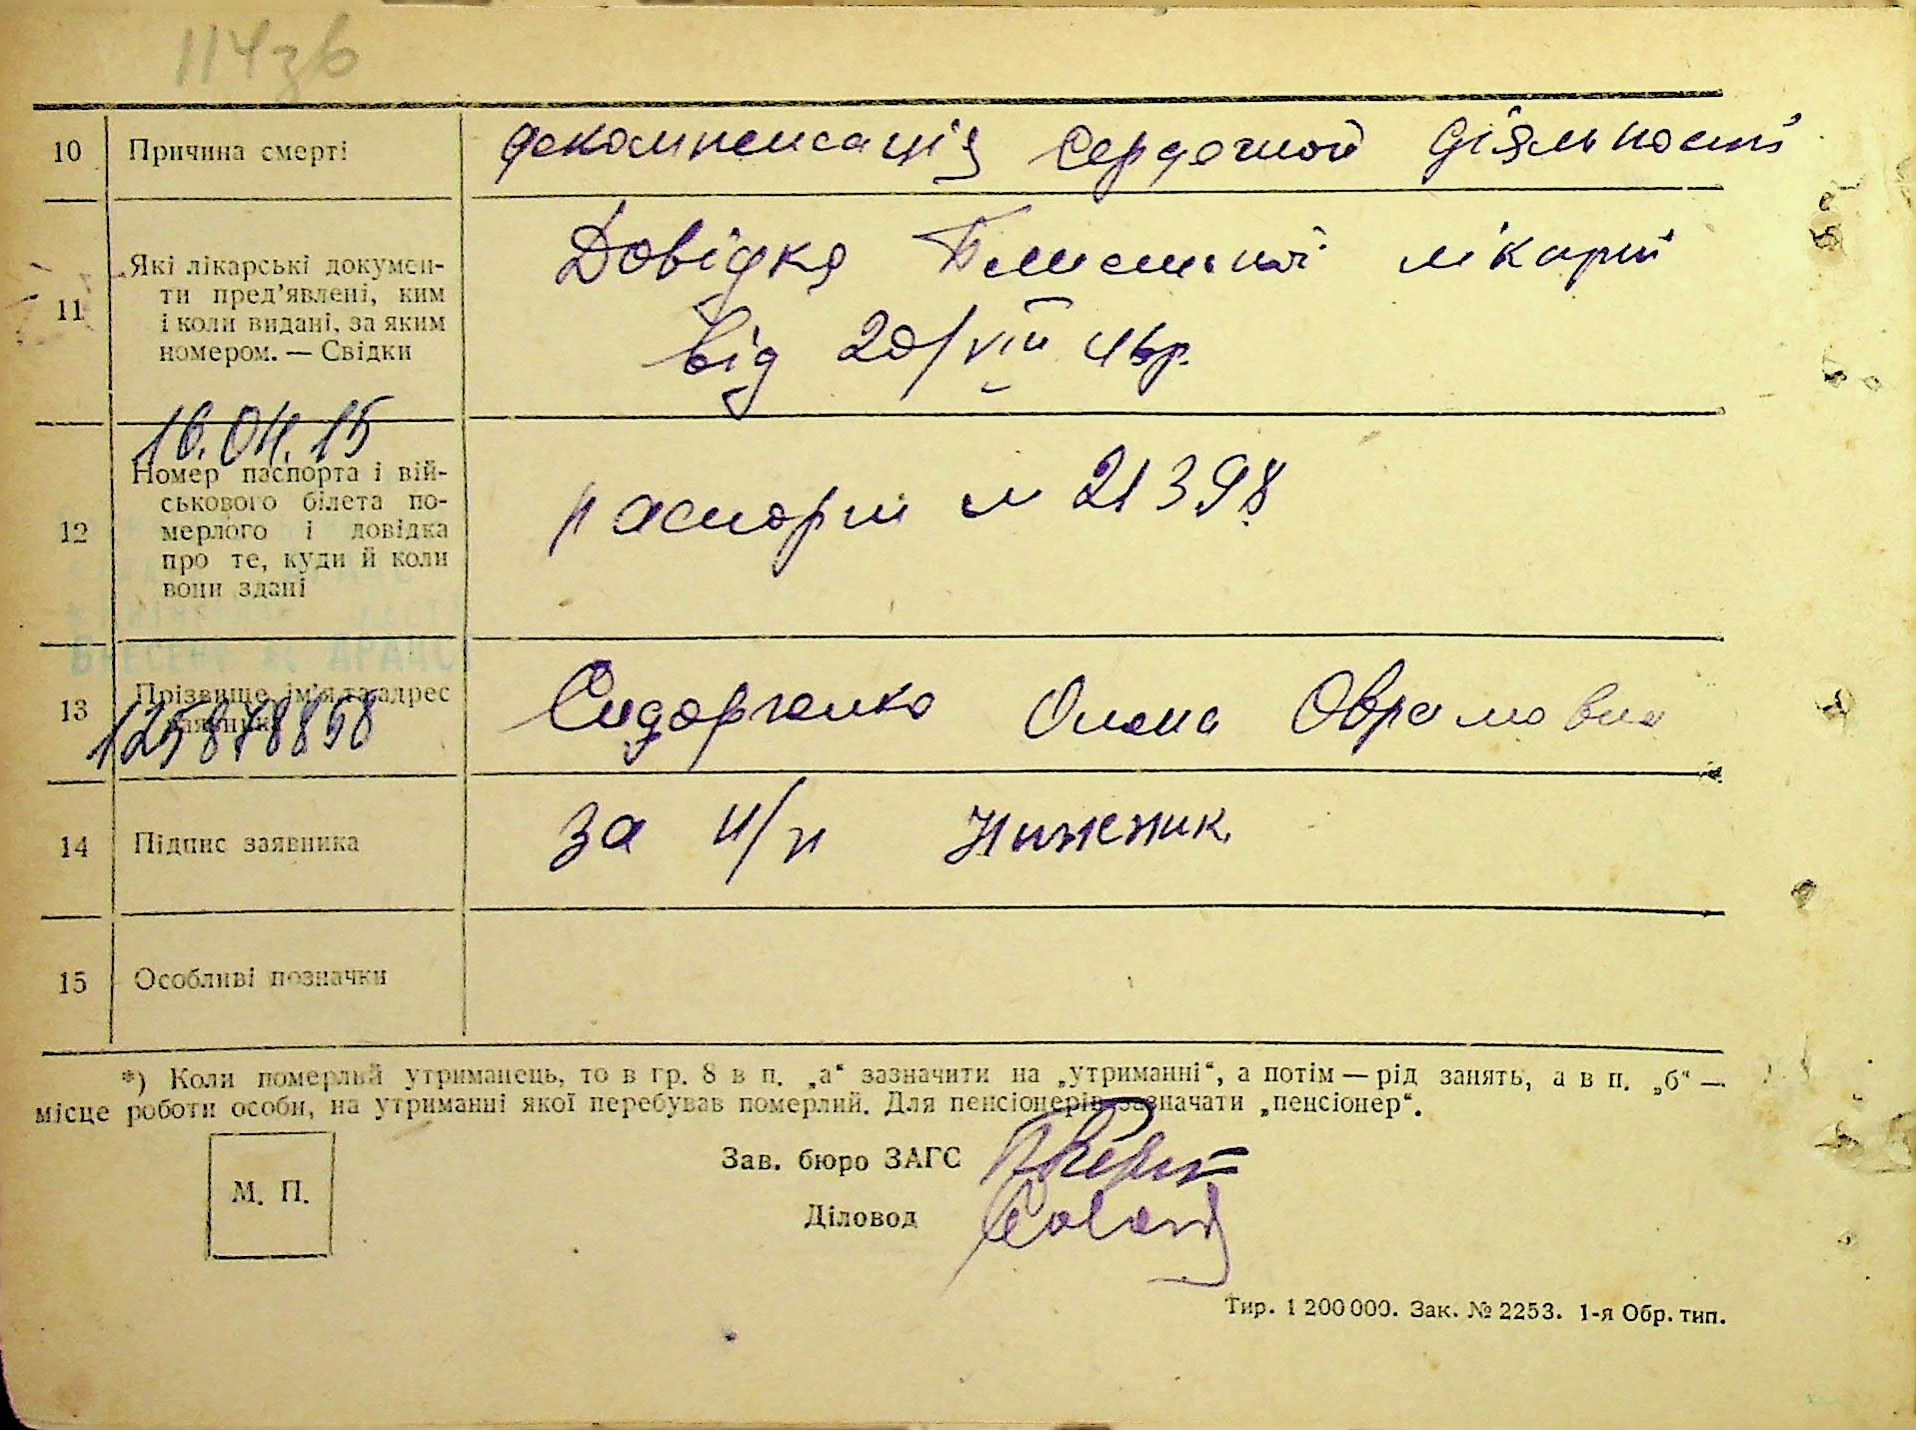 114зв
10 Причина смерті декомпенсація сердечной діяльності
11 Які лікарські докумен-
ти пред'явлені, ким
і коли видані, за яким
номером. — Свідки
Довідка лікарні
від 20/VIII 46р.
16.04.15
12 Номер паспорта і вій-
ськового білета по-
мерлого і довідка
про те, куди й коли
вони здані
паспорт № 21398
13 Прізвище, ім'я та адрес
заявника
Сидорченко Олена Оврамовна
14 Підпис заявника за н/п Нижник
15 Особливі позначки
*) Коли померлий утриманець, то в гр. 8 в п. „а“ зазначити на „утриманні“, а потім — рід занять, а в п. „б“ —
місце роботи особи, на утриманні якої перебував померлий. Для пенсіонерів зазначати „пенсіонер“.
М. П.
Зав. бюро ЗАГС
Діловод
Тир. 1 200 000. Зак. № 2253. 1-я Обр. тип.